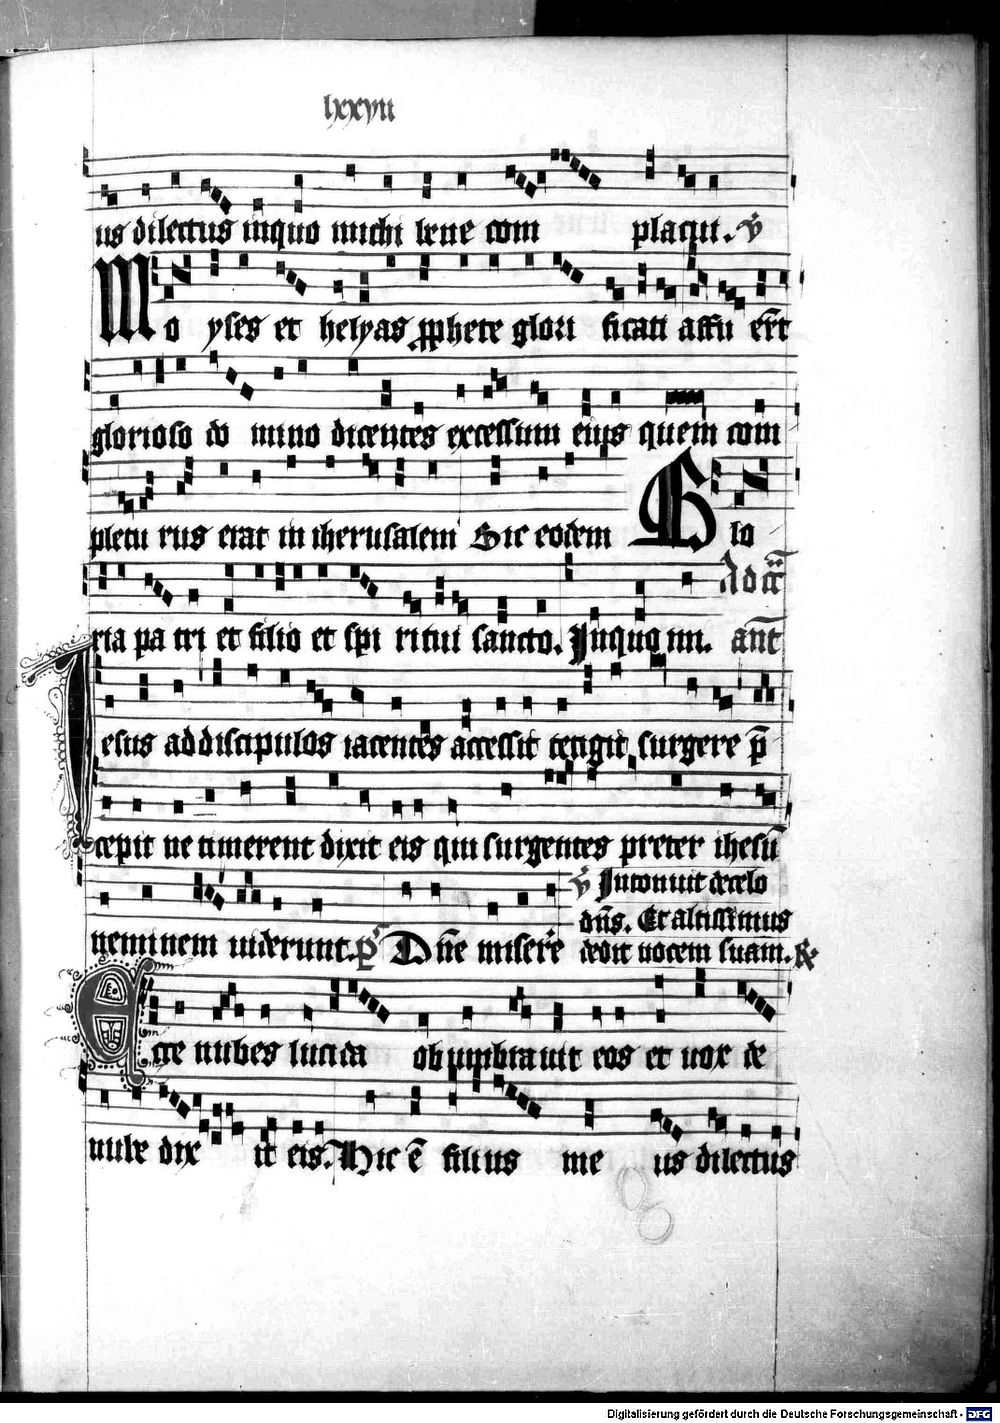 lxxvii
us dilectus inquo michi bene com placui. v̊
Mo yses et helyas ꝓphete glori ficati affu er̄t
glorioso do mino dicentes excessum eius quem com
pletu rus erat in iherusalem Sic eodem Glo
Ad
ria pa tri et filio et spi ritui sancto. Inquo m. ant̄
Iesus ad discipulos iacentes accessit tetigit surgere p̄
cepit ne timerent dixit eis qui surgentes preter ihesū
v̊ Intonuit decelo
dn̄s. Et altissimus
neminem uiderunt. Dn̄e miserere dedit uocem suam. R
Ecce nubes lucida obumbrauit eos et uox de
nube dix it eis. Hic ē filius me us dilectus
Digitalisierung gefördert durch die Deutsche Forschungsgemeinschaft - DFG